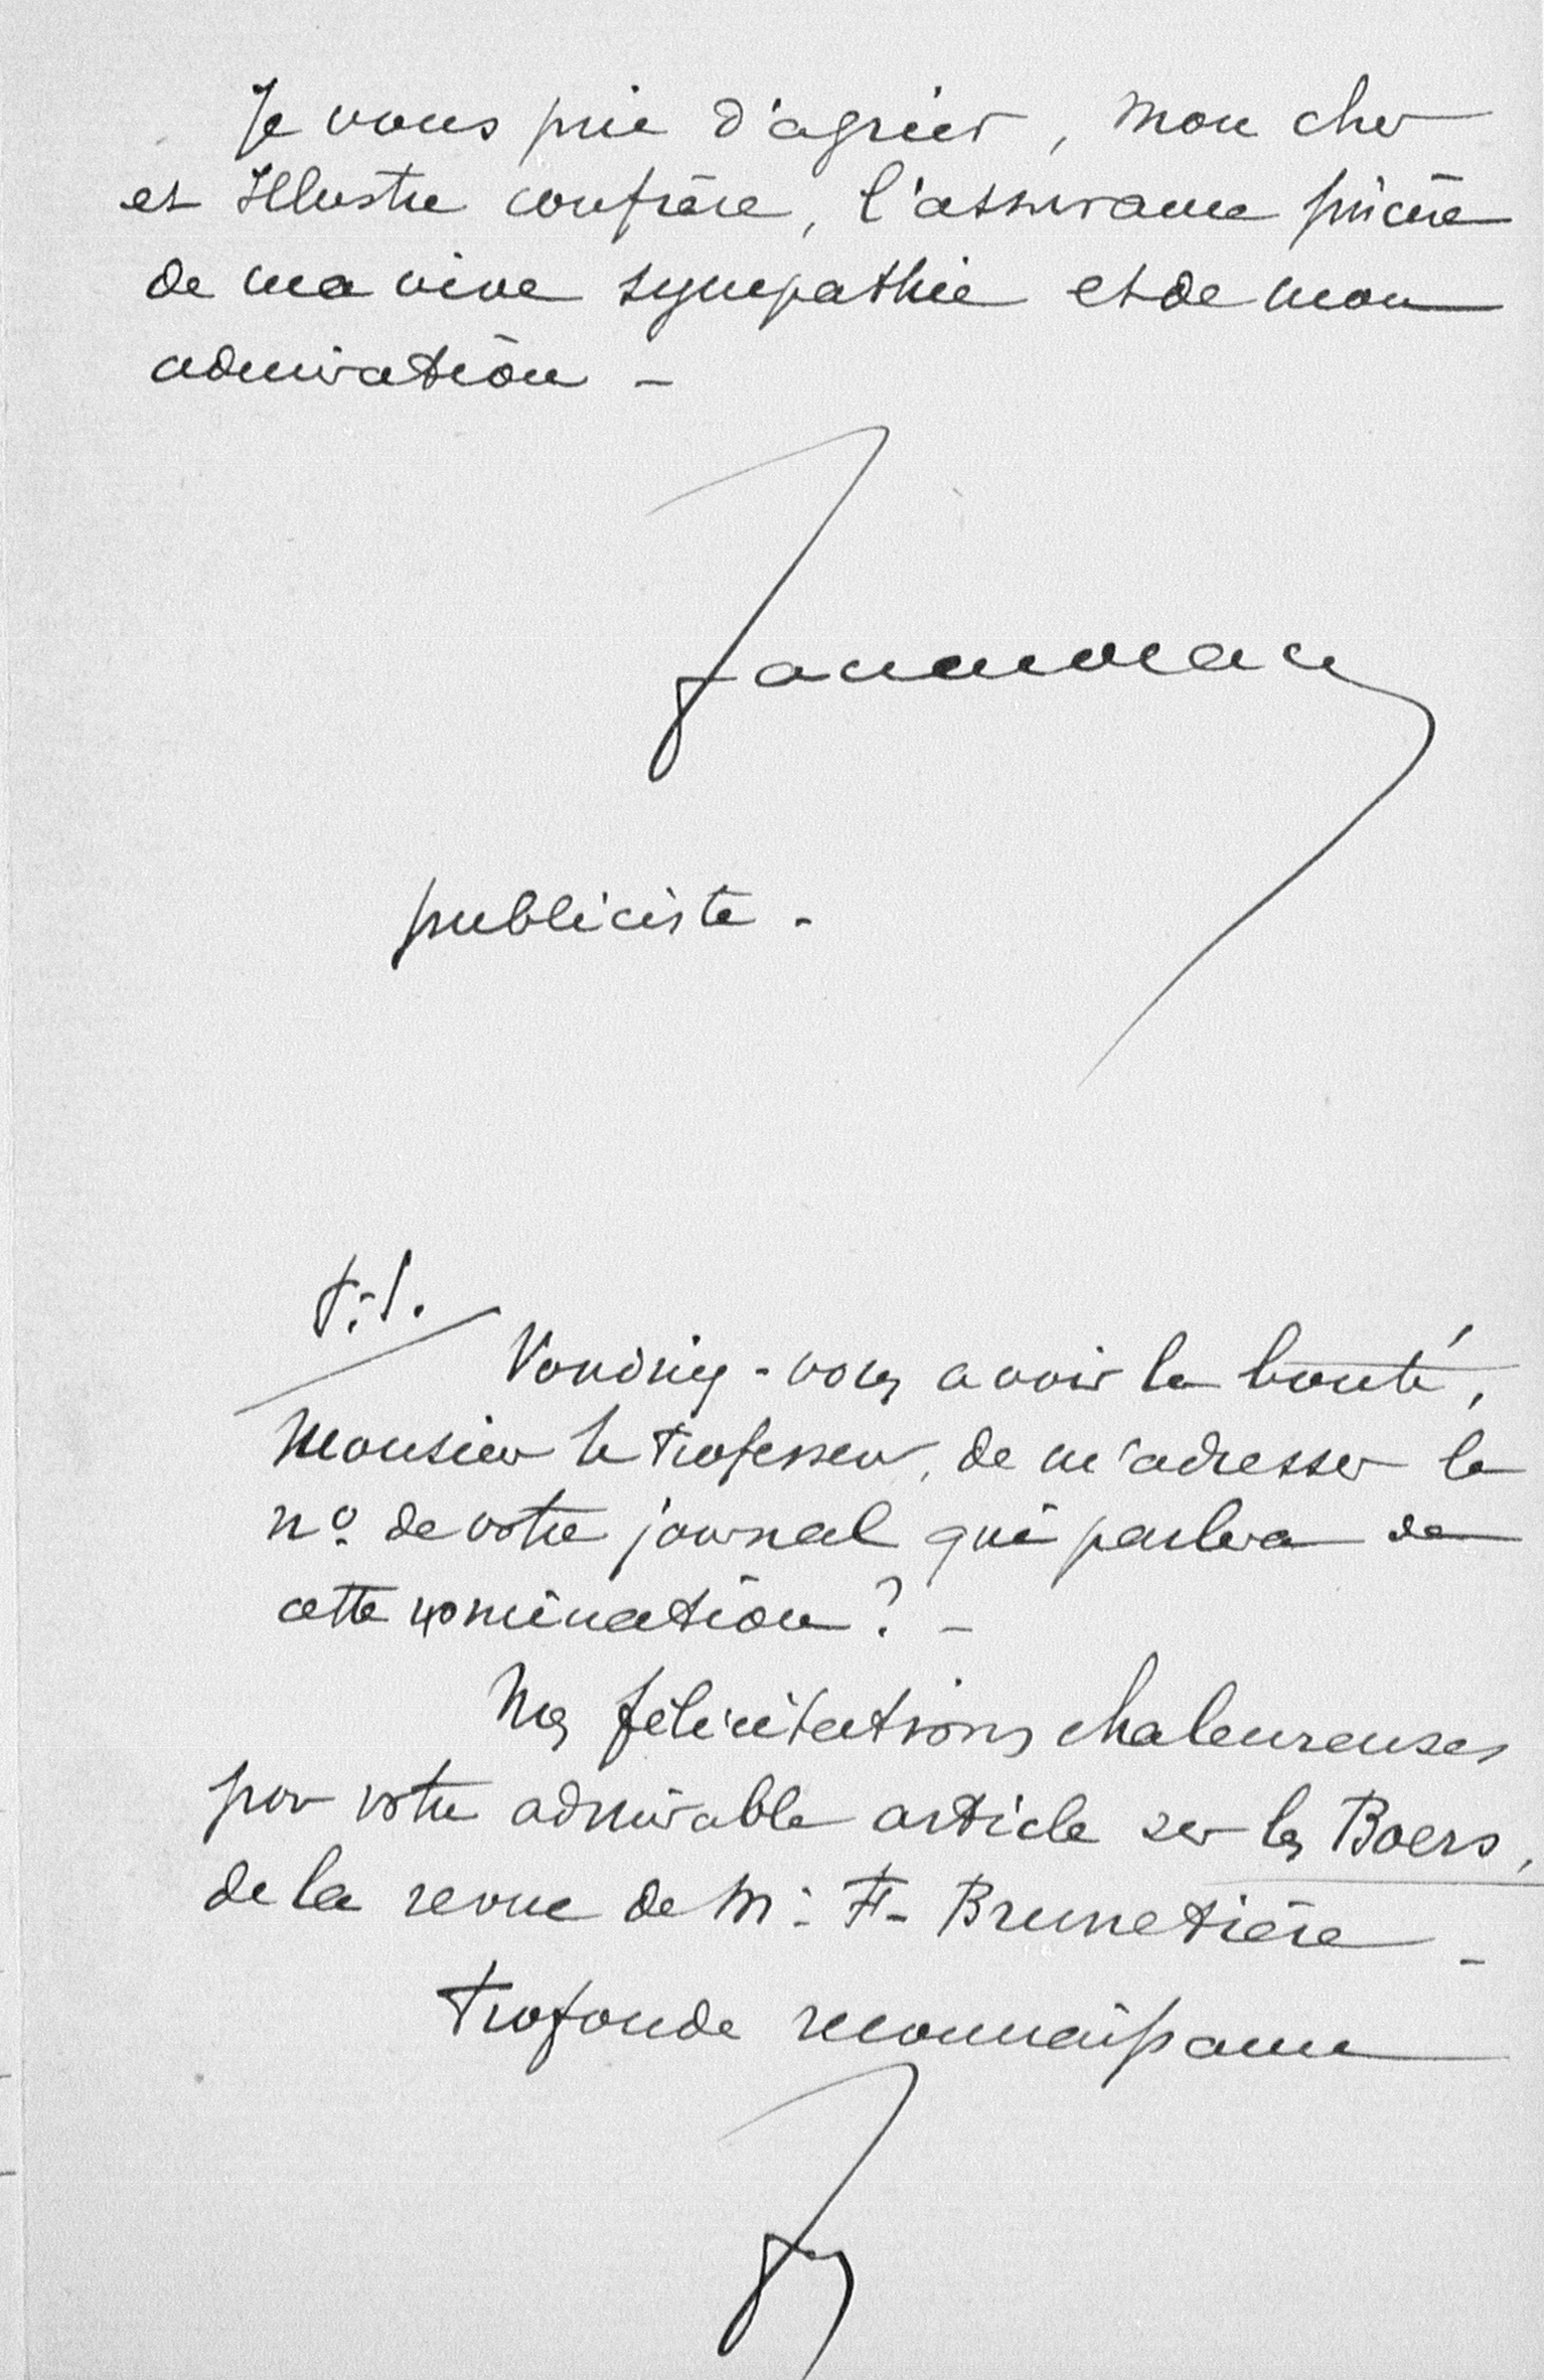 Je vous prie d'agréer, mon cher
et Illustre confrère, l'assurance sincère
de ma vive sympathie et de mon
admiration -
publiciste -
P.S.
Voudriez-vous avoir la bonté,
Monsieur le Professeur, de m'adresser le
nº de votre journal qui parlera de
cette nomination? -
Mes félicitations chaleureuses
pour votre admirable article sur les Boers,
de la revue de M. F. Brunetière -
Profonde reconnaissance